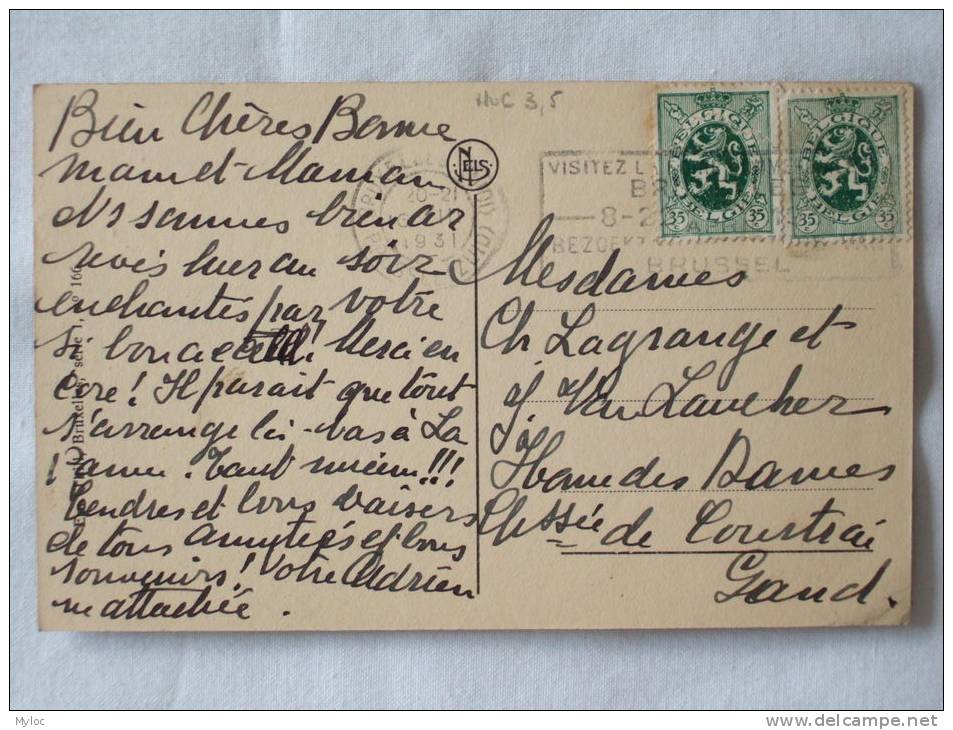 INC 3,5
Bien Chères Bonne
mam et Maman
Ns sommes bien ar
rivés hier au soir
enchantés par votre
si bon accueil! Merci en
core! Il parait que tout
s'arrange là-bas à La
Panne. Tant mieux!!!
Tendres et bons baisers
de tous Amitiés et bons
souvenirs! Votre Adrien
ne attachée.
NELS
20-21
1931
VISITEZ L
8-2
BEZOEKT
BRUSSEL
BELGIQUE
BELGIË
35 c 35 c
BELGIQUE
BELGIË
35 c 35 c
Mesdames
Ch Lagrange et
J. Van Laucher
Home des Dames
Chssée de Courtrai
Gand.
Bruxelles, série 1, n° 166
Myloc
www.delcampe.net